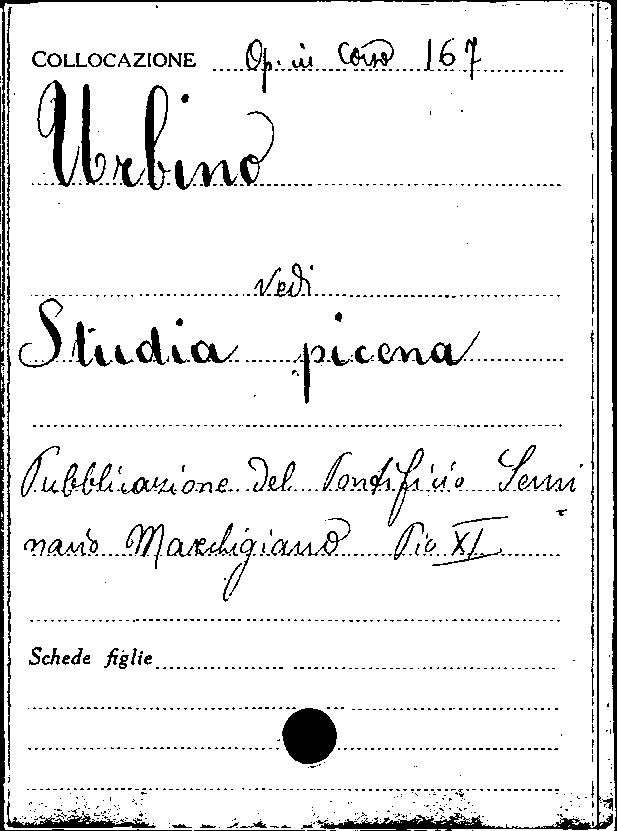 COLLOCAZIONE Op. in Corso 167
Urbino
vedi
Studia picena
Pubblicazione del Pontificio Semi
nario Marchigiano Pio XI
Schede figlie